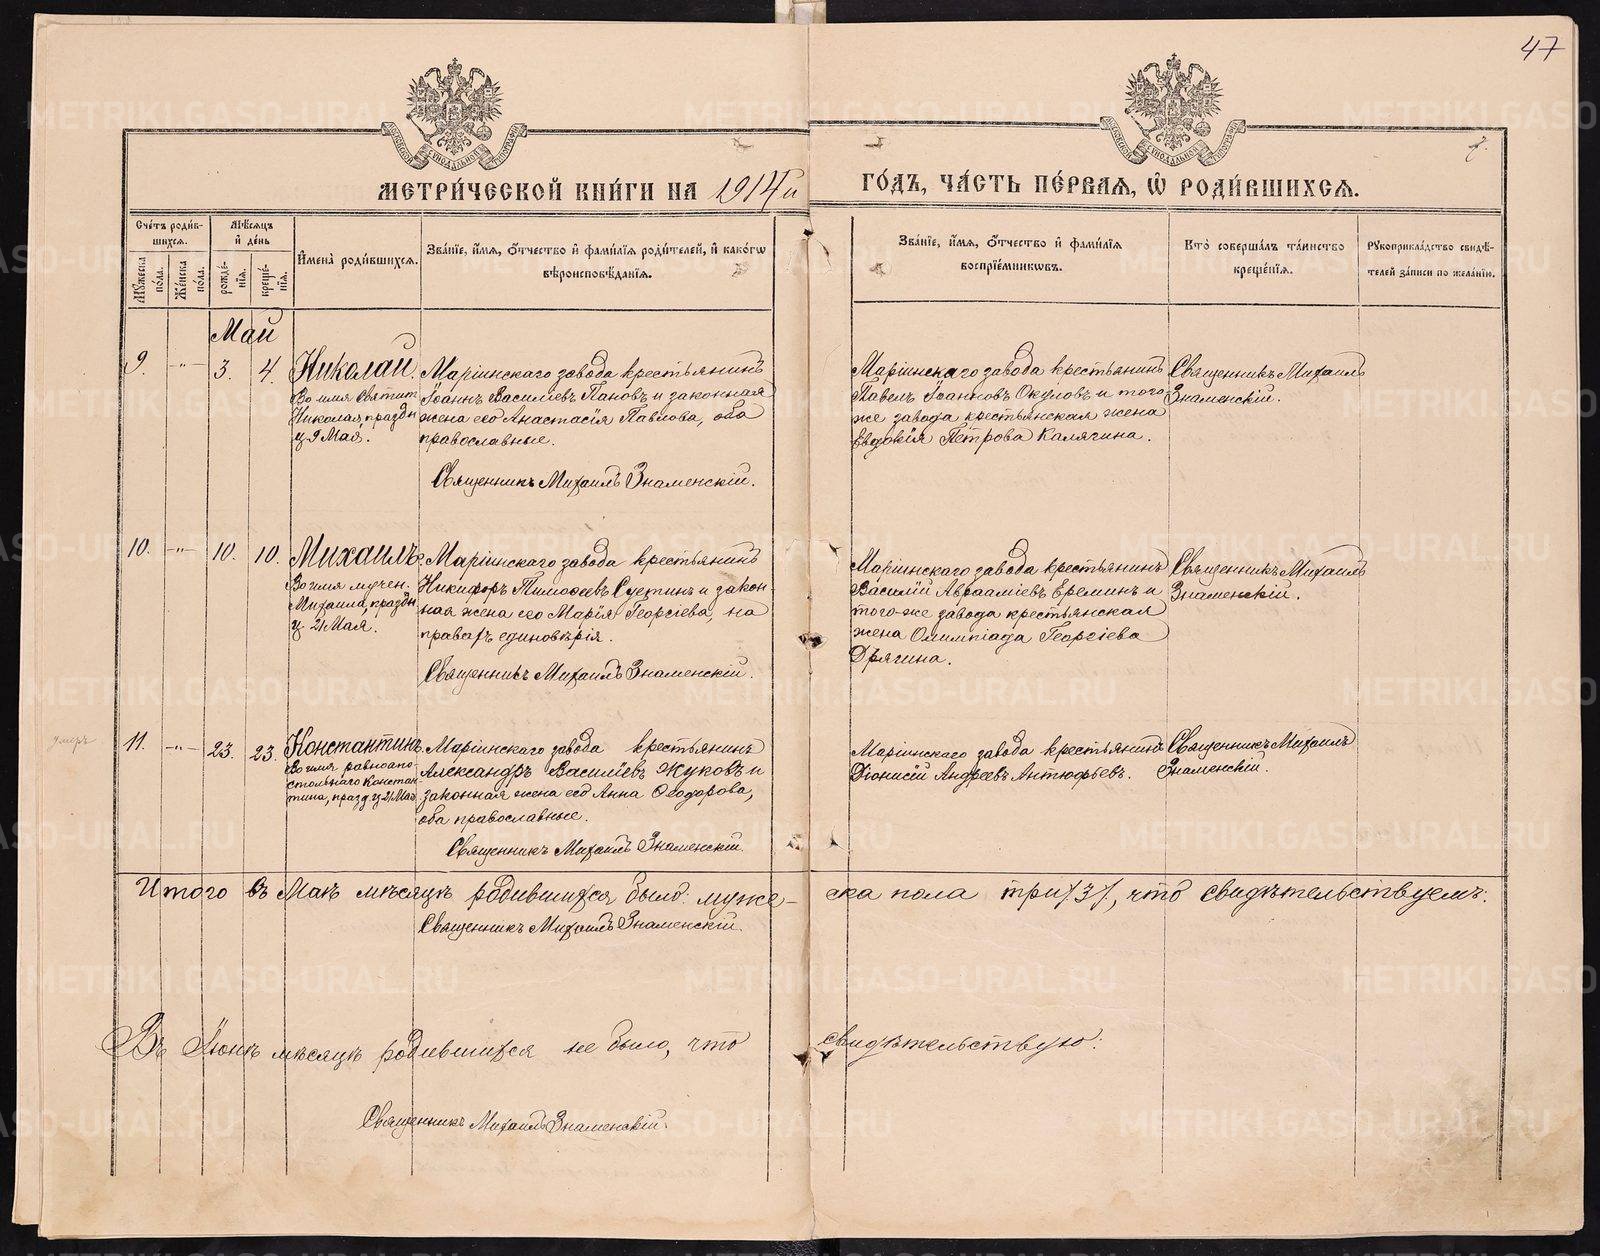 47
МЕТРИ́ЧЕСКОЙ КНИ́ГИ НА 1914й ГО́ДЪ, ЧА́СТЬ ПЕ́РВАѦ, Ѽ РОДИ́ВШИХСѦ.
Сче́тъ роди́в-
шихсѧ.
Мꙋ́жеска по́ла.
Же́нска по́ла.
Мѣ́сѧцъ и҆ де́нь
рожде́-
нїѧ.
креще́-
нїѧ.
И҆мена̀ роди́вшихсѧ.
Зва́нїе, и҆́мѧ, ѻ҆́тчество и҆ фами́лїѧ роди́телей, и҆ како́гѡ
вѣроисповѣ́данїѧ.
Зва́нїе, и҆́мѧ, ѻ҆́тчество и҆ фами́лїѧ
воспрїе́мникѡвъ.
Кто̀ соверша́лъ та́инство
креще́нїѧ.
Рꙋкоприкла́дство свидѣ́-
телей за́писи по жела́нїю.
Май
9. -"- 3. 4. Николай.
Во имя Святит
Николая, празд
ц 9 Мая.
Маріинскаго завода крестьянинъ
Іоаннъ Василіевъ Пановъ и законная
жена его Анастасія Павлова, оба
православные.
Священникъ Михаилъ Знаменскій.
Маріинскаго завода крестьянинъ
Павелъ Іоанновъ Окуловъ и того
же завода крестьянская жена
Евдокія Петрова Калягина.
Священникъ Михаилъ
Знаменскій.
10. -"- 10. 10. Михаилъ.
Во имя мучен.
Михаила, празд
ц. 21 Мая.
Маріинскаго завода крестьянинъ
Никифоръ Тимофеевъ Сустинъ и закон-
ная жена его Марія Георгіева, на
правахъ единовѣрія.
Священникъ Михаилъ Знаменскій.
Маріинскаго завода крестьянинъ
Василій Авраамиевъ Ереминъ и
того-же завода крестьянская
жена Олимпіада Георгіева
Дрягина.
Священникъ Михаилъ
Знаменскій.
умеръ
11. -"- 23. 23. Константинъ.
Во имя равноапо-
стольнаго Констан
тина, празд ц 21 Мая
Маріинскаго завода крестьянинъ
Александръ Василіевъ Жуковъ и
законная жена его Анна Ѳеодорова,
оба православные.
Священникъ Михаилъ Знаменскій.
Маріинскаго завода крестьянинъ
Діонисій Андреевъ Антюфьевъ.
Священникъ Михаилъ
Знаменскій.
Итого въ Маѣ мѣсяцѣ родившихся было: муже-
ска пола три /3/, что свидѣтельствуемъ:
Священникъ Михаилъ Знаменскій.
Въ Іюнѣ мѣсяцѣ родившихся не было, что
свидѣтельствую:
Священникъ Михаилъ Знаменскій.
METRIKI.GASO-URAL.RU